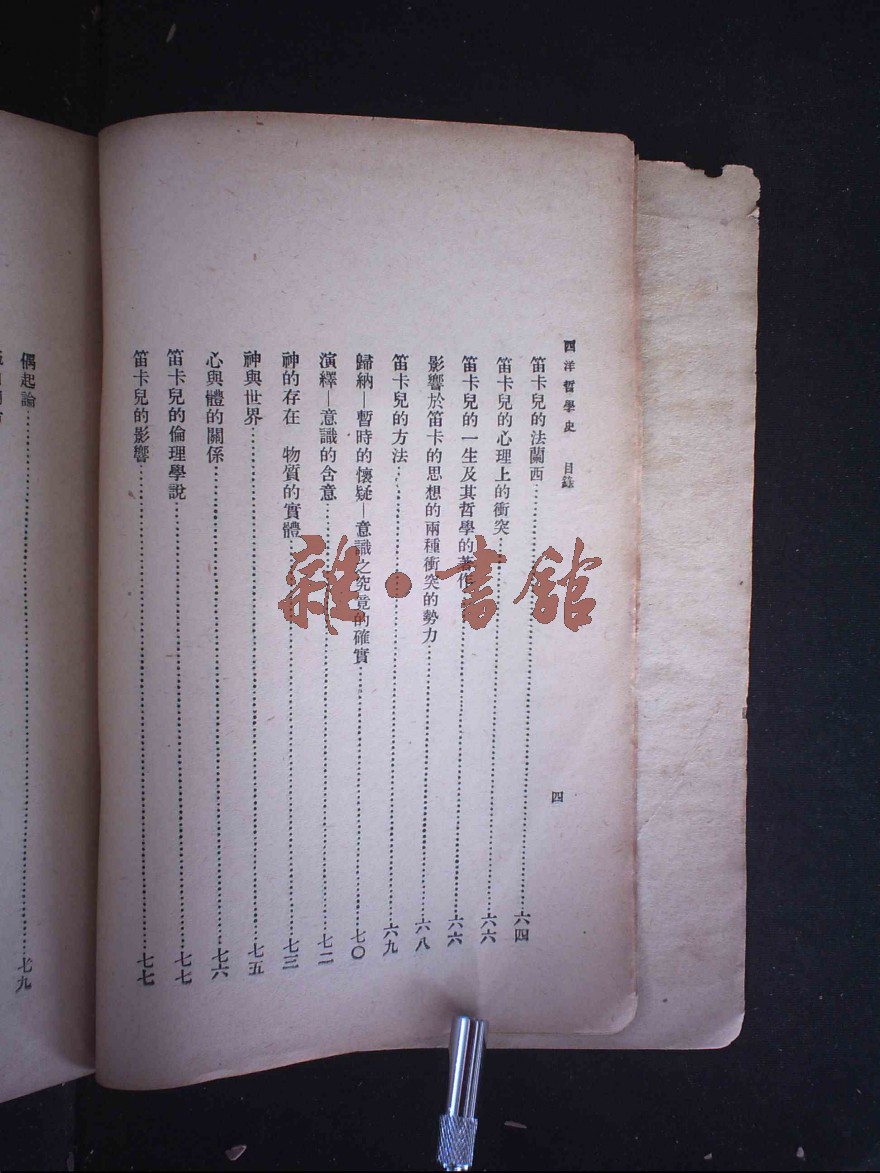 西洋哲學史　目錄
四
笛卡兒的法蘭西……六四
笛卡兒的心理上的衝突……六六
笛卡兒的一生及其哲學的著作……六六
影響於笛卡的思想的兩種衝突的勢力……六八
笛卡兒的方法……六九
歸納—暫時的懷疑—意識之究竟的確實……七〇
演繹—意識的含意……七二
神的存在　物質的實體……七三
神與世界……七五
心與體的關係……七六
笛卡兒的倫理學說……七七
笛卡兒的影響……七七
偶起論……七九
雜·書館